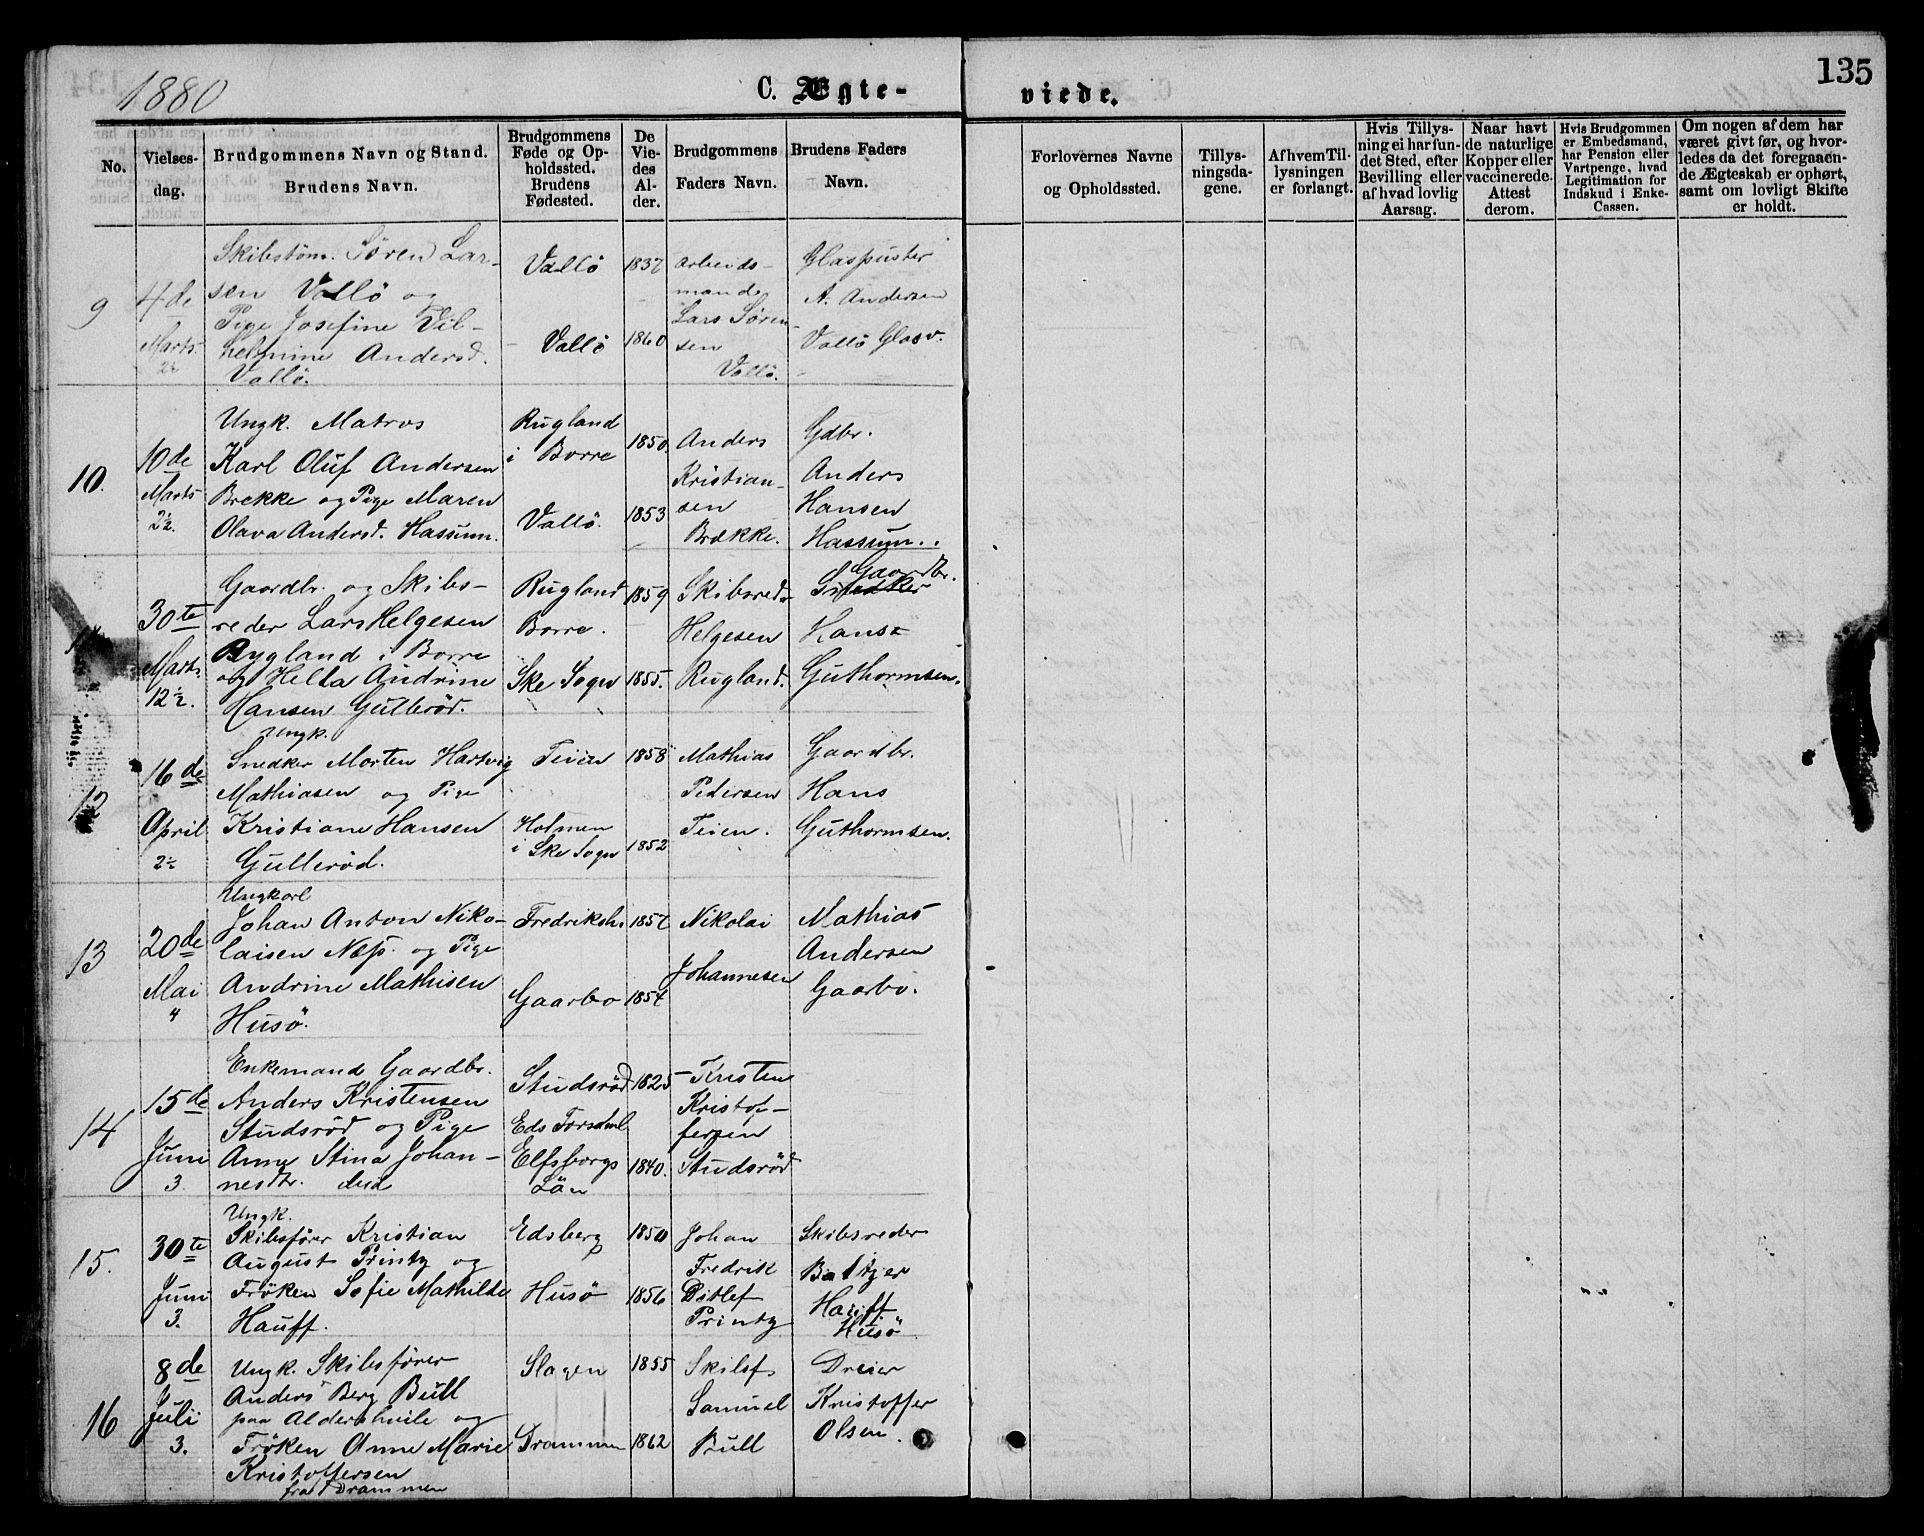 1880
C. Ægte-
viede.
135
No.
Vielses-
dag.
Brudgommens Navn og Stand.
Brudens Navn.
Brudgommens
Føde og Op-
holdssted.
Brudens
Fødested.
De
Vie-
des
Al-
der.
Brudgommens
Faders Navn.
Brudens Faders
Navn.
Forlovernes Navne
og Opholdssted.
Tillys-
ningsda-
gene.
Af hvem Til-
lysningen
er forlangt.
Hvis Tillys-
ning ei har fun-
det Sted, efter
Bevilling eller
af hvad lovlig
Aarsag.
Naar havt
de naturlige
Kopper eller
vaccinerede.
Attest
derom.
Hvis Brudgommen
er Embedsmand,
har Pension eller
Vartpenge, hvad
Legitimation for
Indskud i Enke-
Cassen.
Om nogen af dem har
været givt før, og hvor-
ledes da det foregaaen-
de Ægteskab er ophørt,
samt om lovligt Skifte
er holdt.
9
4de
Marts
2½
Skibstøm. Søren Lar-
sen Vallö og
Pige Josefine Vil-
helmine Andersd.
Vallö.
Vallö
Vallö
1837
1860
Arbeids-
mand
Lars Sören-
sen
Vallö.
Glaspuster
A. Andersen
Vallö Glasv.
10.
10de
Marts
2½.
Ungk. Matros
Karl Oluf Andersen
Brekke og Pige Maren
Olava Andersd. Hassum.
Rugland
i Borre
Vallö.
1850.
1853
Anders
Kristian-
sen
Brække.
Gdbr.
Anders
Hansen
Hassum.
30te
Marts
12½.
Gaardbr. og Skibs-
reder Lars Helgesen
Rygland i Borre
og Helta Andrine
Hansen Gullerød.
Rugland
Borre.
Ske Sogn
1859
1855.
Skibsred.
Helgesen
Rugland.
Gaardbr.
Hans
Guthormsen.
12
16de
April
2½
Ungk.
Snedker Morten Hartvig
Mathiasen og Pige
Kristiane Hansen
Gullerød.
Teien
Holmen
i Ske Sogn
1858
1852
Mathias
Pedersen
Teien.
Gaardbr.
Hans
Guthormsen.
13
20de
Mai
4
Ungkarl
Johan Anton Niko-
laisen Næs. og Pige
Andrine Mathisen
Husö.
Fredriksh.
Gaarbo
1857
1854
Nikolai
Johannesen
Mathias
Andersen
Gaarbo.
14
15de
Juni
3
Enkemand Gaardbr.
Anders Kristensen
Studsrød og Pige
Anne Stina Johan-
nesdtr.
Studsrød
Elfsborgs
Län
1825
1840.
Kristen
Kristof-
fersen
Studsrød
15.
30te
Juni
3.
Ungk.
Skibsfører Kristian
August Printz og
Frøken Sofie Mathilde
Hauff.
Edsberg
Husö
1850
1856
Johan
Fredrik
Ditlef
Printz
Skibsreder
Baltzer
Hauff
Husö
16
8de
Juli
3.
Ungk. Skibsfører
Anders Berg Bull
paa Aldershvile og
Frøken Anne Marie
Kristoffersen
fra Drammen
Slagen
Drammen
1855
1862
Skibsf.
Samuel
Bull
Dreier
Kristoffer
Olsen.